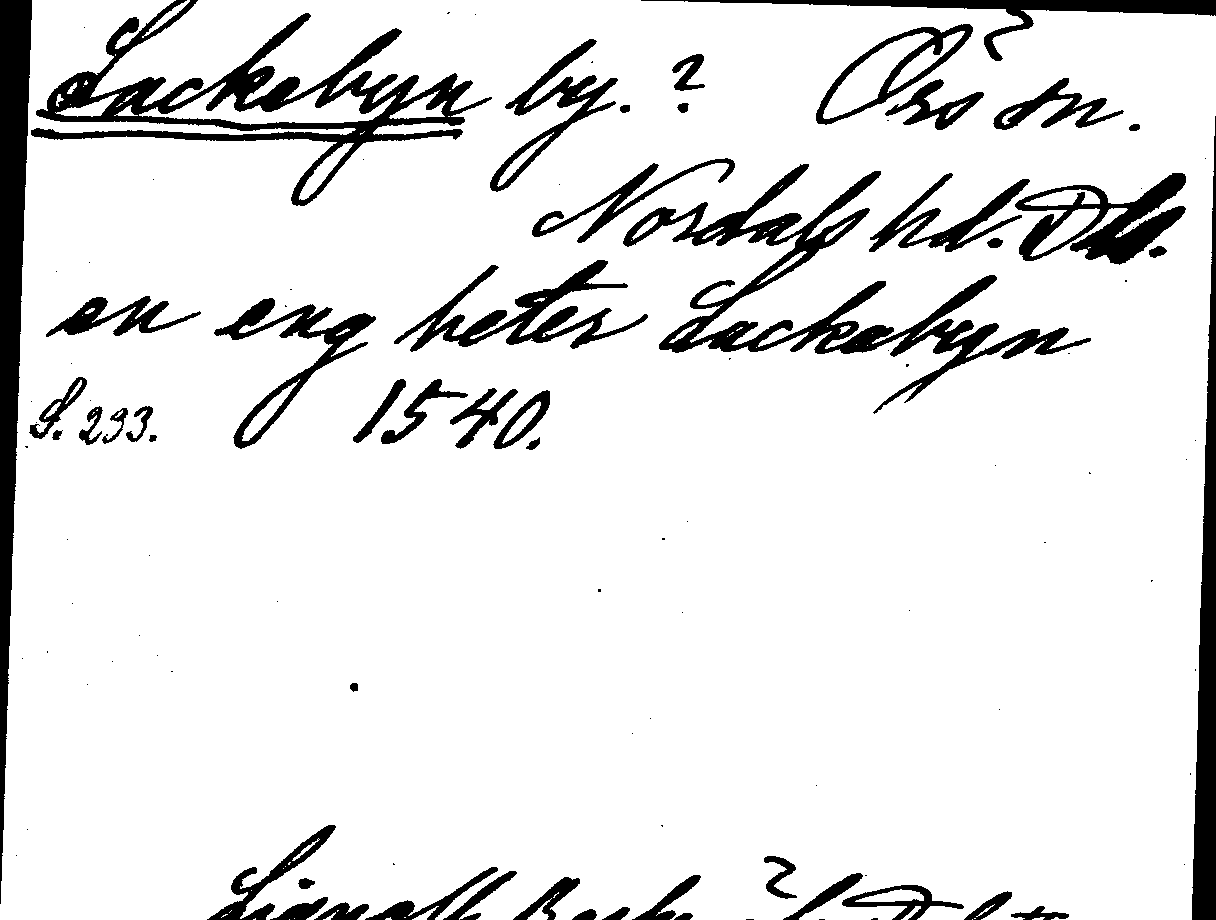 Lackabyn by. ? Örs sn.
Nordals hd. Dls.
en eng heter Lackabyn
S. 233. 1540.